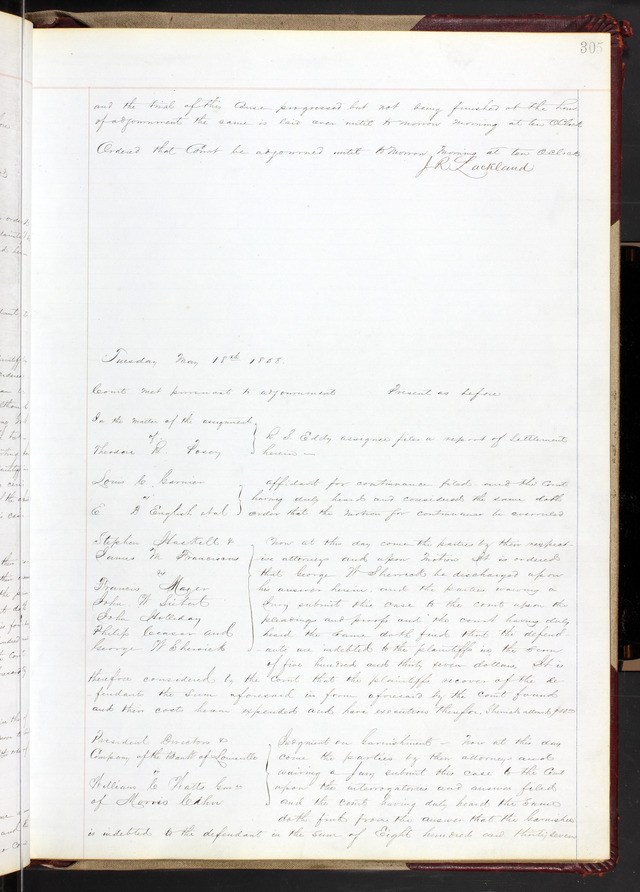 305
and the trial of this cause progressed but not being finished at the hour
of adjournment the same is laid over until to morrow morning at ten OClock
Ordered that Court be adjourned until to morrow morning at ten OClock
J R Lackland
Tuesday May 18th 1858
Court met pursuant to adjournment Present as before
In the matter of the assignment
of
Theodore
R S Eddy assignee files a report of Settlement
herein
Louis C. Garnier
vs
E D English et al
affidavit for continuance filed and the Court
having duly heard and considered the same doth
order that the motion for continuance be overruled
Stephen Haskell &
James M Franciscus
vs
Francis Hager
John W Siebert
John Holliday
Philip Ceaser and
George W Sherrick
Now at this day come the parties by their respect-
ive attorneys and upon motion It is ordered
that George W Sherrick be discharged upon
his answer herein and the parties waiving a
Jury submit this case to the court upon the
pleadings and proofs and the court having duly
heard the same doth find that the defend-
ants are indebted to the plaintiffs in the sum
of five hundred and thirty seven dollars, It is
therefore considered by the Court that the plaintiffs recover of the de-
fendants the sum aforesaid in form aforesaid by the court found
and their cost herein expended and have execution therefor,
President Directors &
Company of the Bank of Louisville
vs
William C Watts Gar
of Morris Cahn
Judgment on Garnishment - Now at this day
come the parties by their attorneys and
waiving a Jury submit this case to the Court
upon the interrogatories and answer filed
and the court having duly heard the same
doth find from the answer that the Garnishee
is indebted to the defendant in the sum of Eight hundred and thirty seven